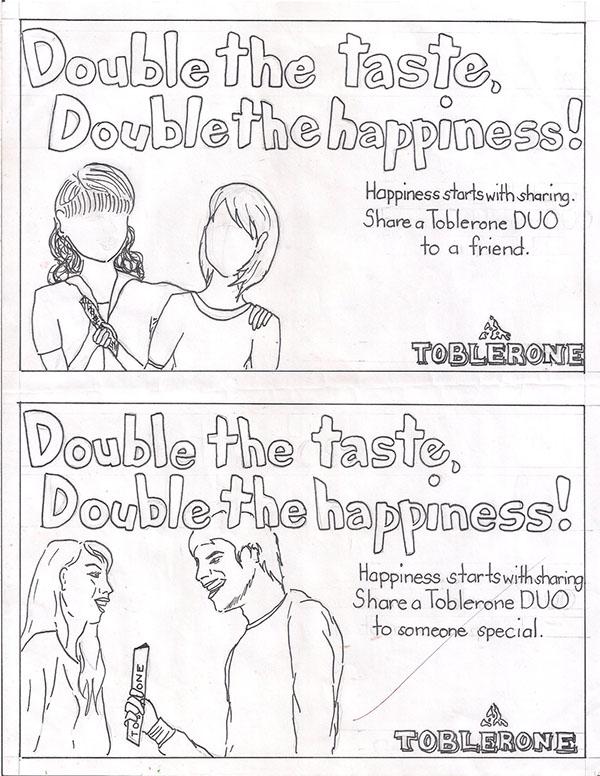 Double the taste,
Double the happiness!
Happiness starts with sharing.
Share a Toblerone DUO
to a friend.
TOBLERONE
Double the taste,
Double the happiness!
Happiness starts with sharing
Share a Toblerone DUO
to someone special.
TOBLERONE